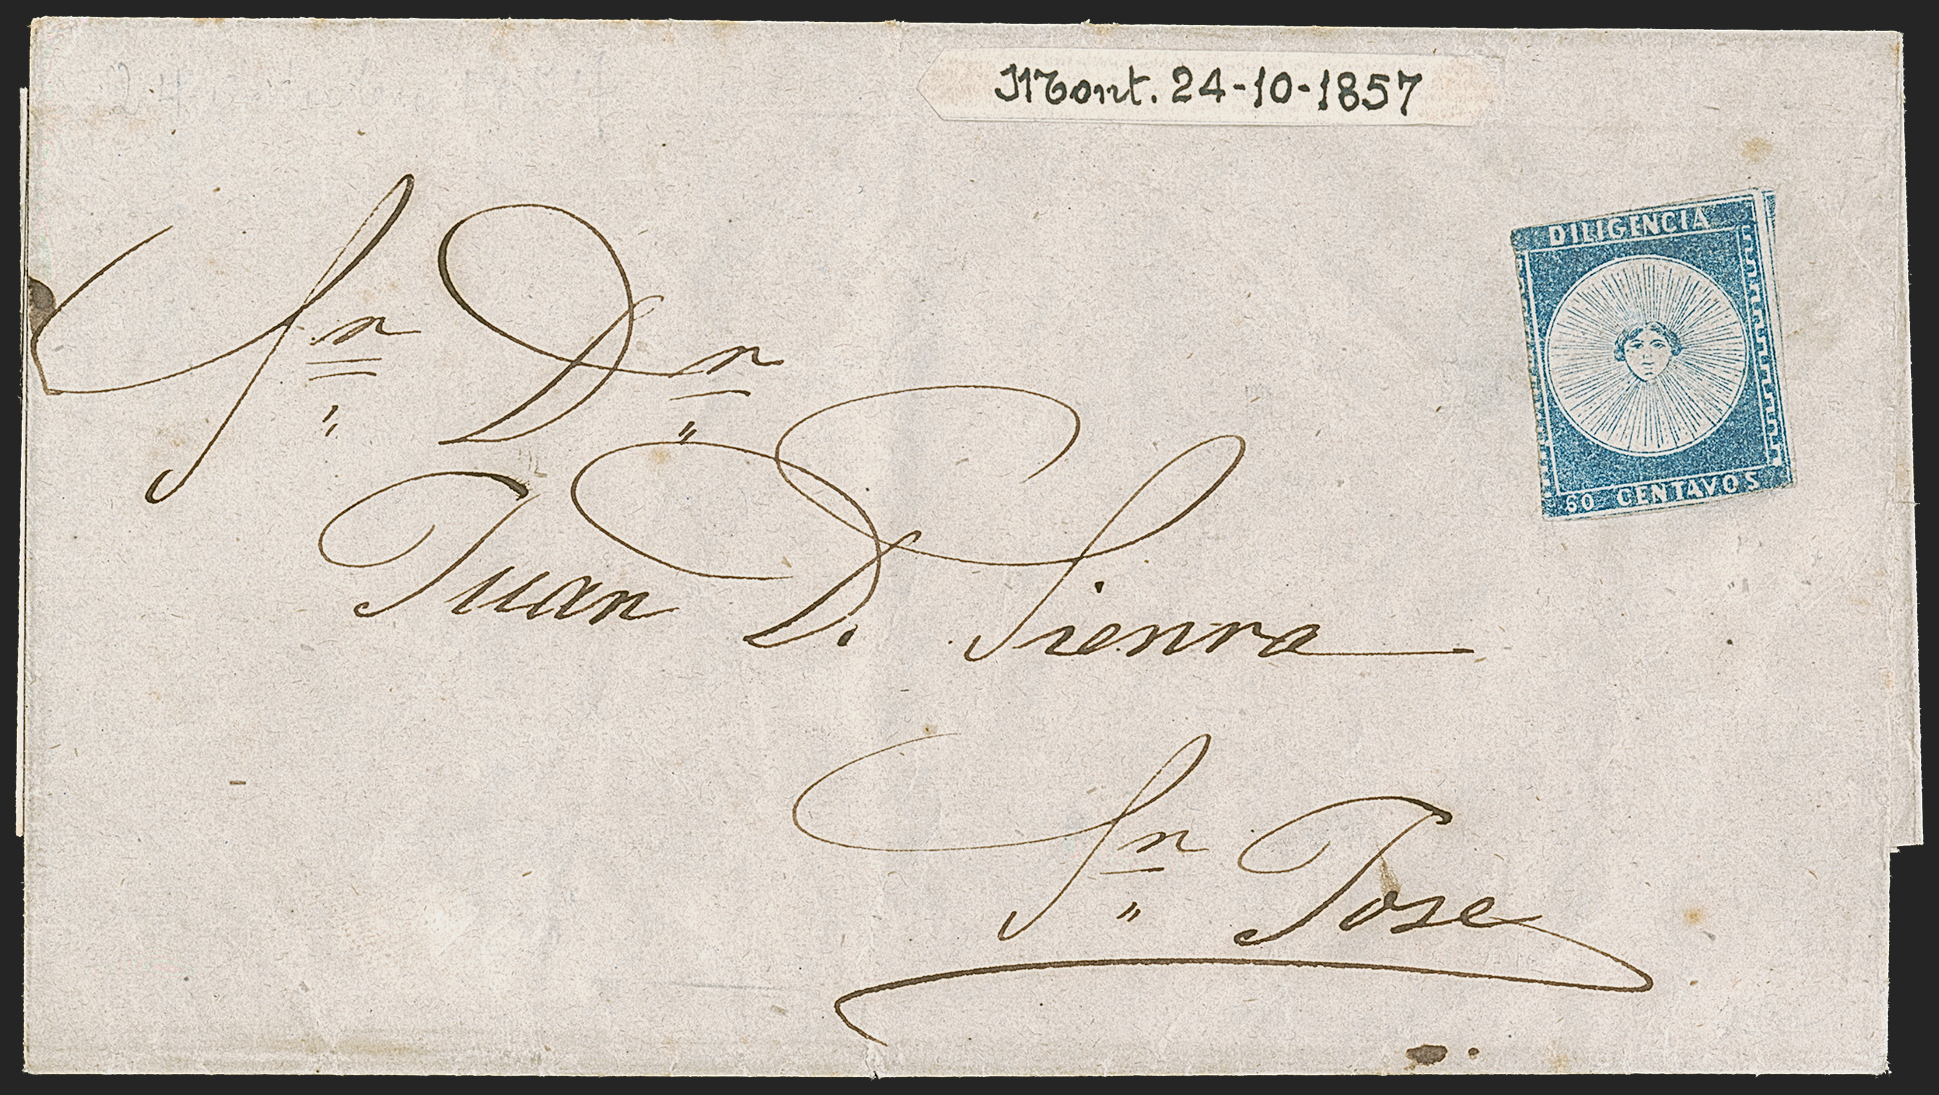 Mont. 24-10-1857
DILIGENCIA
60 CENTAVOS
Sr Dn
Juan D. Sienra
Sn Jose